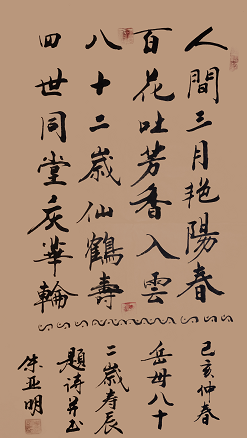 人間三月艳陽春
百花吐芳香入雲
八十二歲仙鶴壽
四世同堂庆華輪
己亥仲春
岳母八十
二歲寿辰
题诗并书
亚明